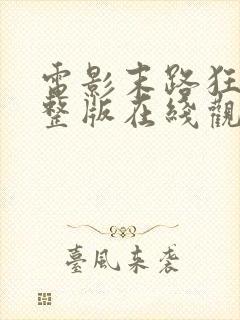 電影末路狂
整版在綫觀
臺風來袭